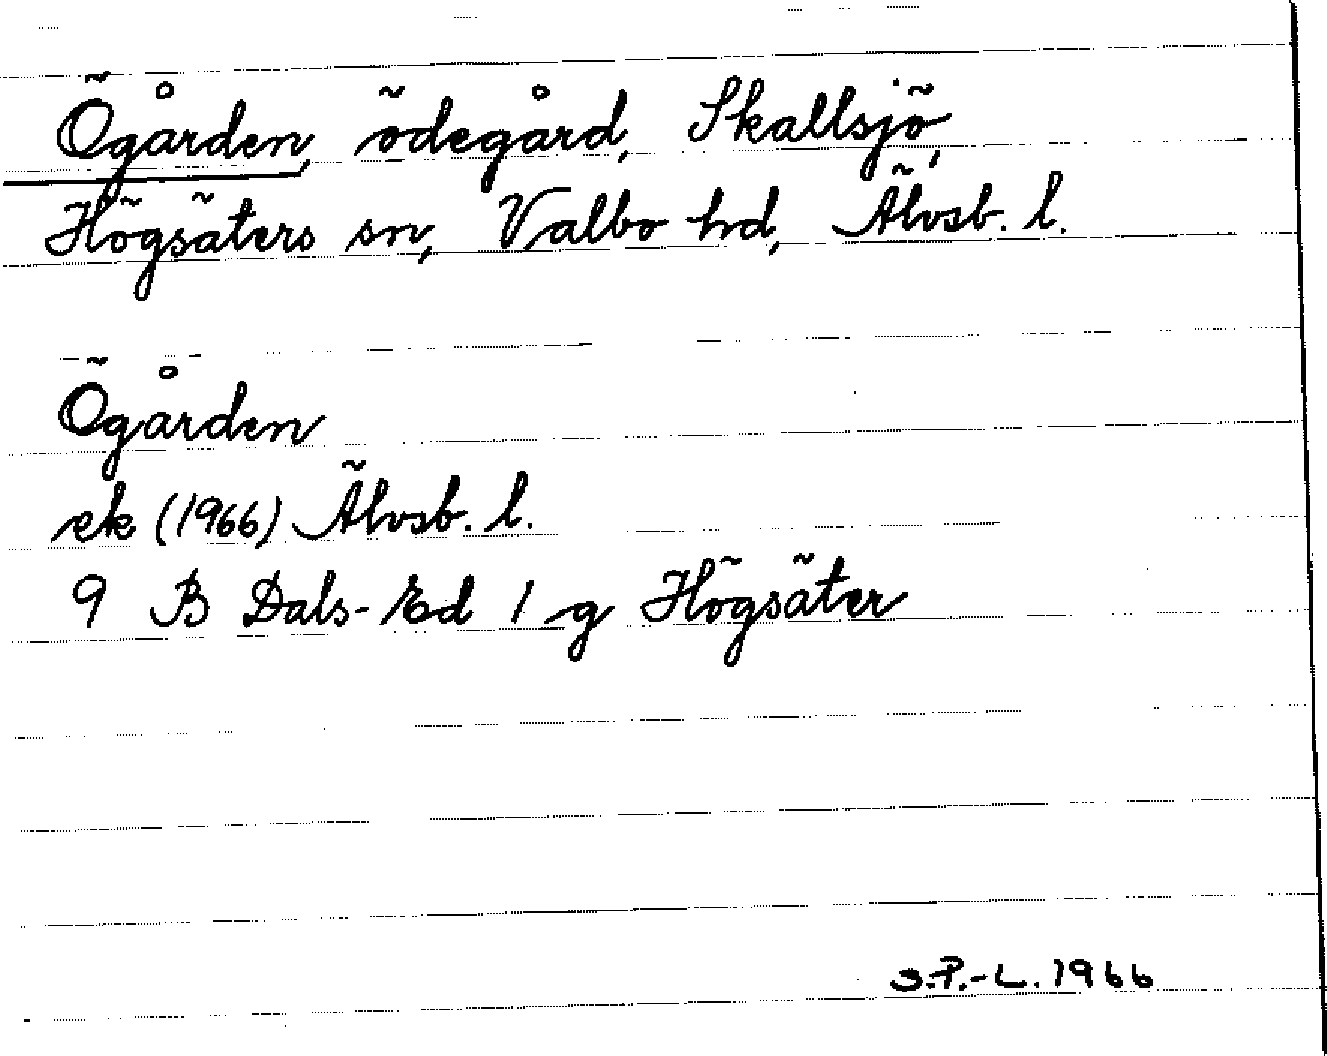 Ögården, ödegård, Skallsjö,
Högsäters sn, Valbo hd, Älvsb. l.
Ögården
ek (1966) Älvsb. l.
9 B Dals-Ed 1 g Högsäter
S.P.-L. 1966